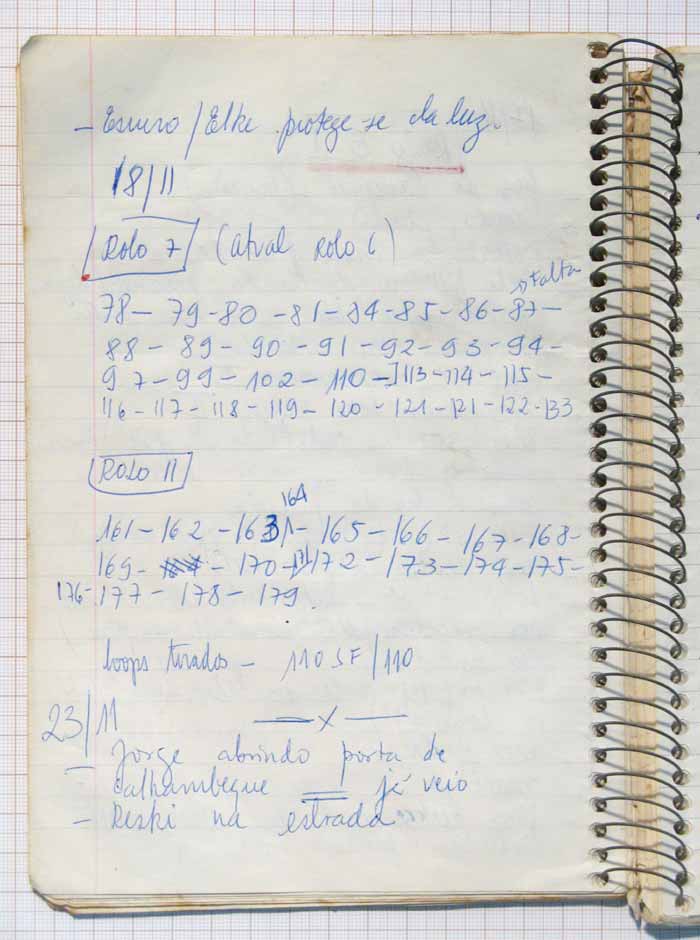 - Escuro / Elke protege-se da luz.
18/11
Rolo 7 (atual rolo 6)
→ Falta
78 - 79 - 80 - 81 - 84 - 85 - 86 - 87 -
88 - 89 - 90 - 91 - 92 - 93 - 94 -
97 - 99 - 102 - 110 - ] 113 - 114 - 115 -
116 - 117 - 118 - 119 - 120 - 121 - 121 - 122 - 133
ROLO 11
164
161 - 162 - 163 / - 165 - 166 - 167 - 168 -
169 - - 170 - 171 172 - 173 - 174 - 175 -
176 - 177 - 178 - 179.
loops tirados - 110 SF / 110
23/11 — x —
- Jorge abrindo porta de
calhambeque = já veio
- Reski na estrada